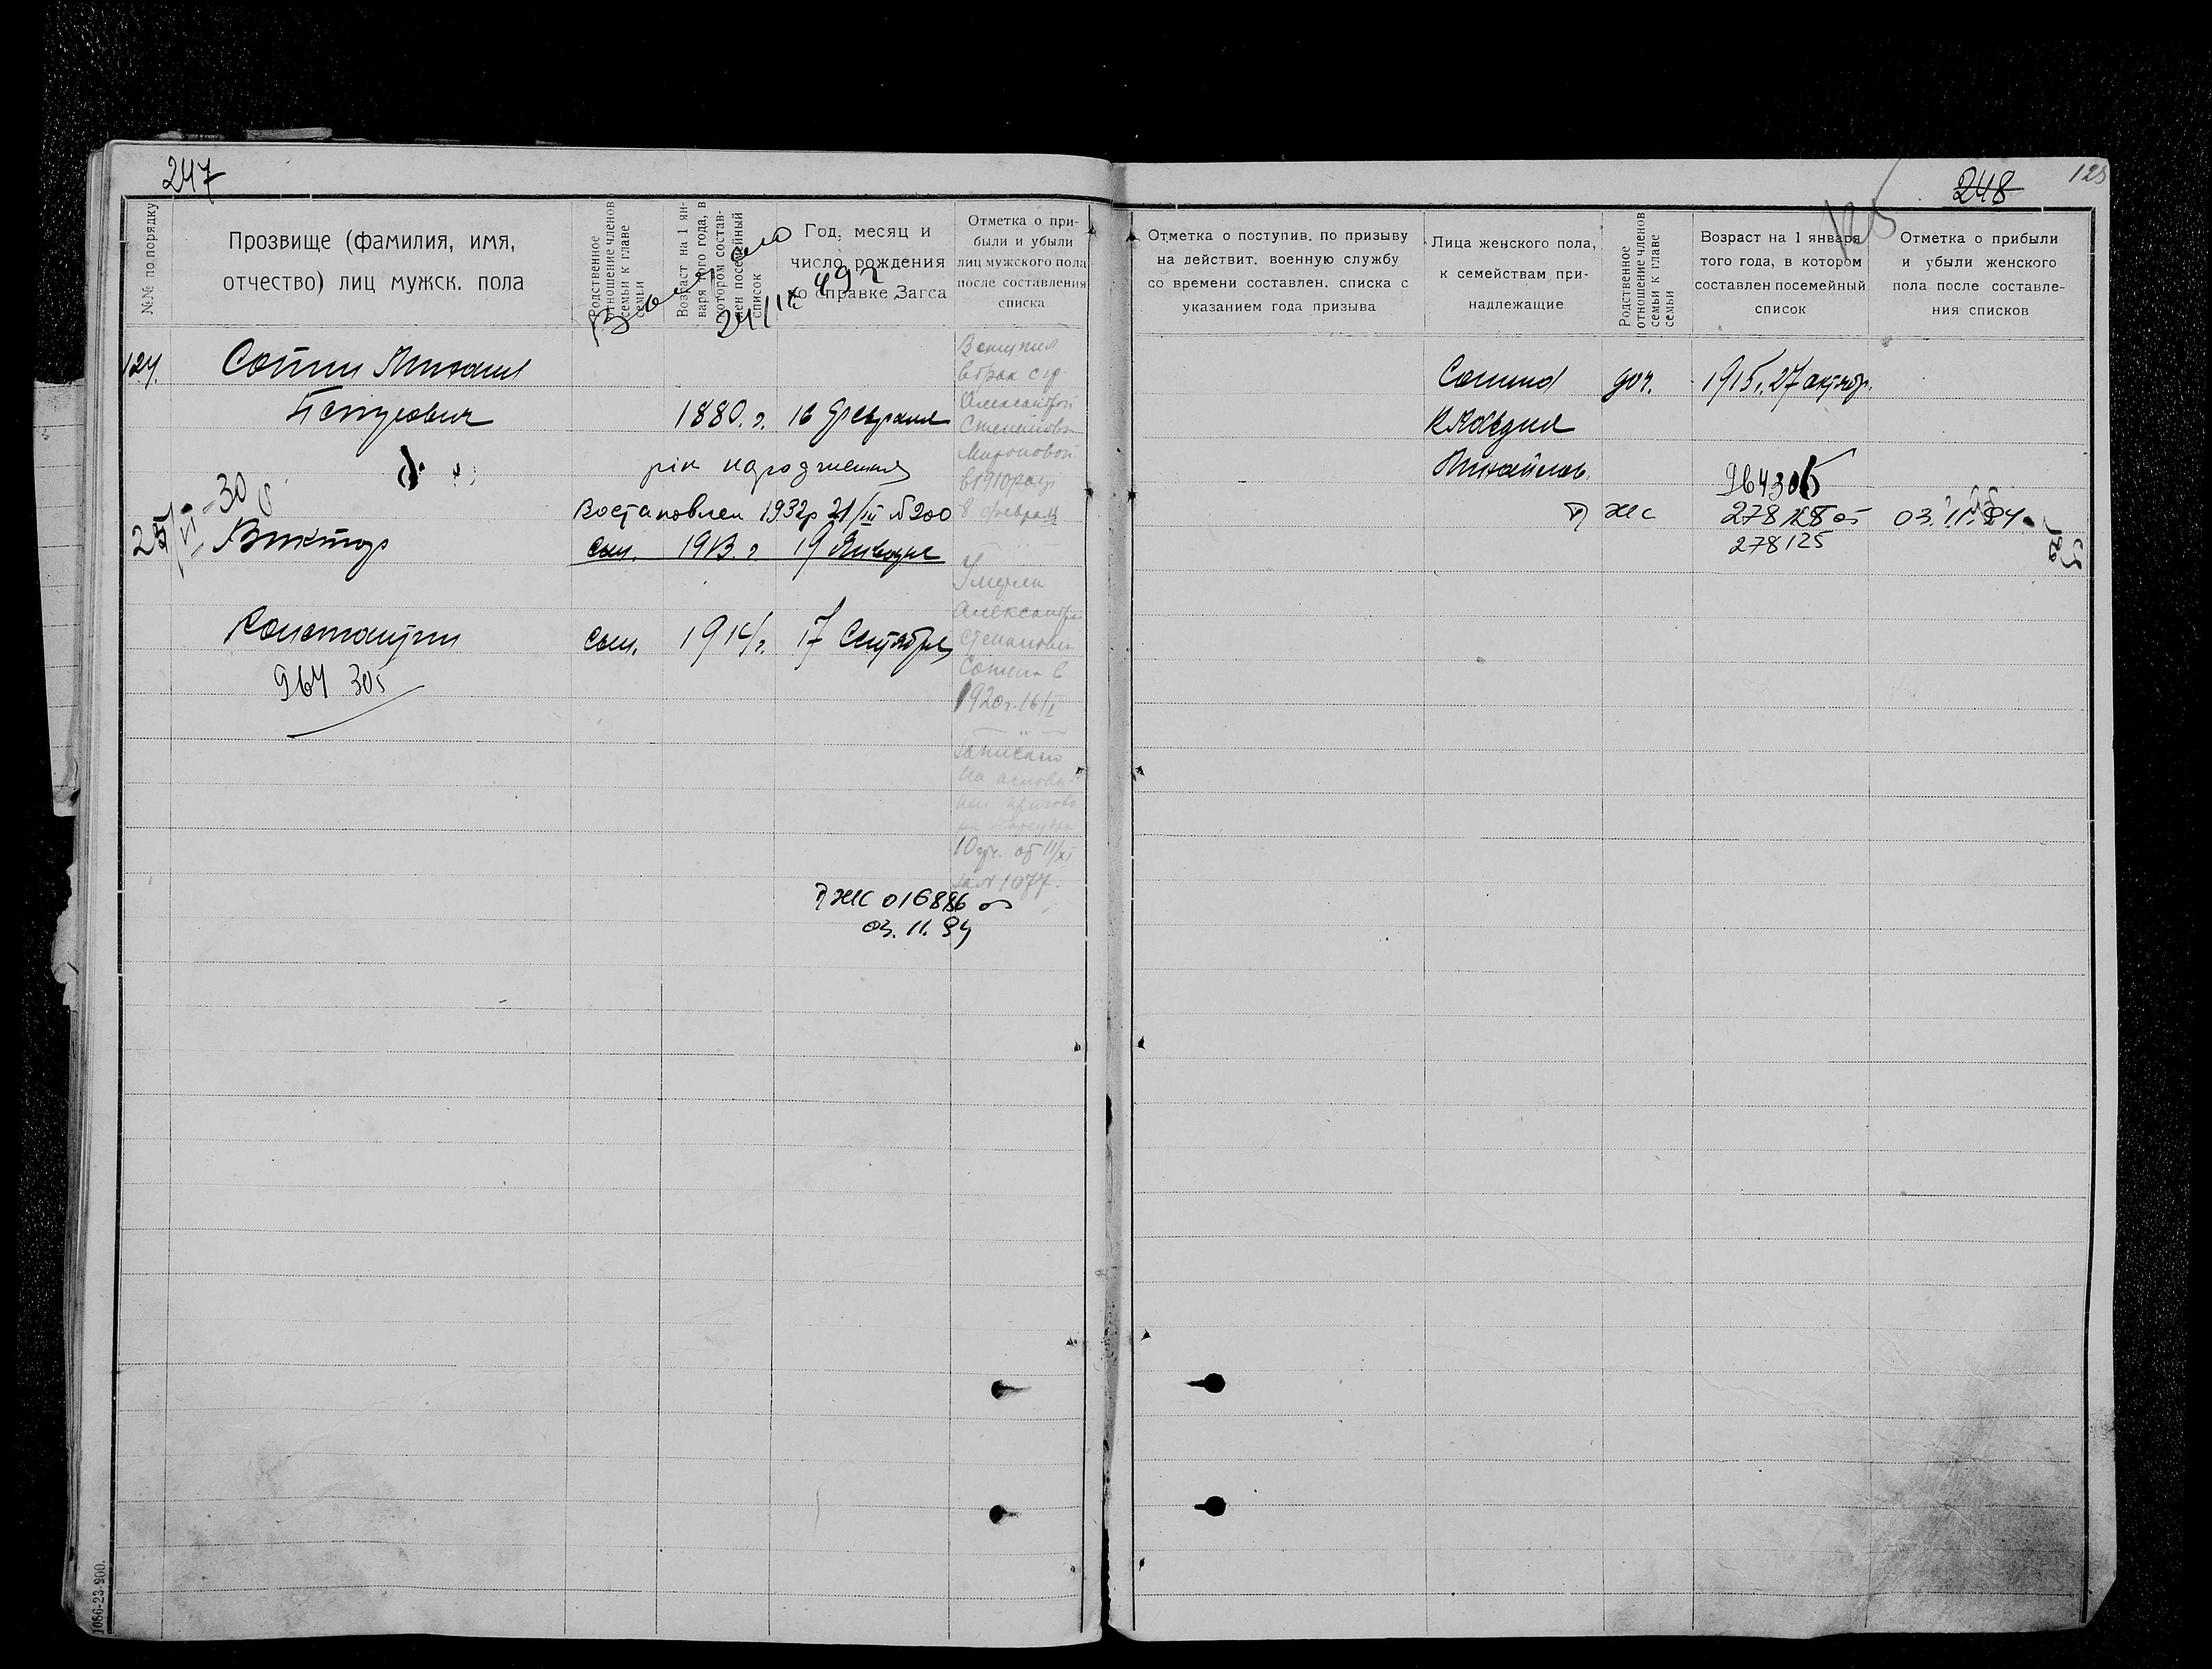 247
№№ по порядку
Прозвище (фамилия, имя,
отчество) лиц мужск. пола
Родственное
отношение членов
семьи к главе
семьи
Возраст на 1 ян-
варя того года, в
котором состав-
лен посемейный
список
Год, месяц и
число рождения
по справке Загса
Отметка о при-
были и убыли
лиц мужского пола
после составления
списка
124.
Сотин Михаил
1880. г. 16 февраля
рік народження
Востановлен 1932р 21/III №200
25/VI-30
Виктор сын. 1913. г 19 Января
Константин сын. 1914 г. 17 Сентября
964 305
Вступил
в брак с гр.
Александрой
Степановой
Мироновой
в 1910 году
8 февраля
Умерла
Александра
Степановна
Сотина в
1920г. 16/I
записано
на основа-
10 уч. от 11/XI
за № 1077.
ЖС 016886 от
03.11.94
1086-23-200.
248
125
125
Отметка о поступив. по призыву
на действит. военную службу
со времени составлен. списка с
указанием года призыва
Лица женского пола,
к семействам при-
надлежащие
Родственное
отношение членов
семьи к главе
семьи
Возраст на 1 января
того года, в котором
составлен посемейный
список
Отметка о прибыли
и убыли женского
пола после составле-
ния списков
Сотина доч. 1915г. 27 октябр.
Клавдия
Михайлов.
964305
ЖС 278128 от 03.11.94
278125